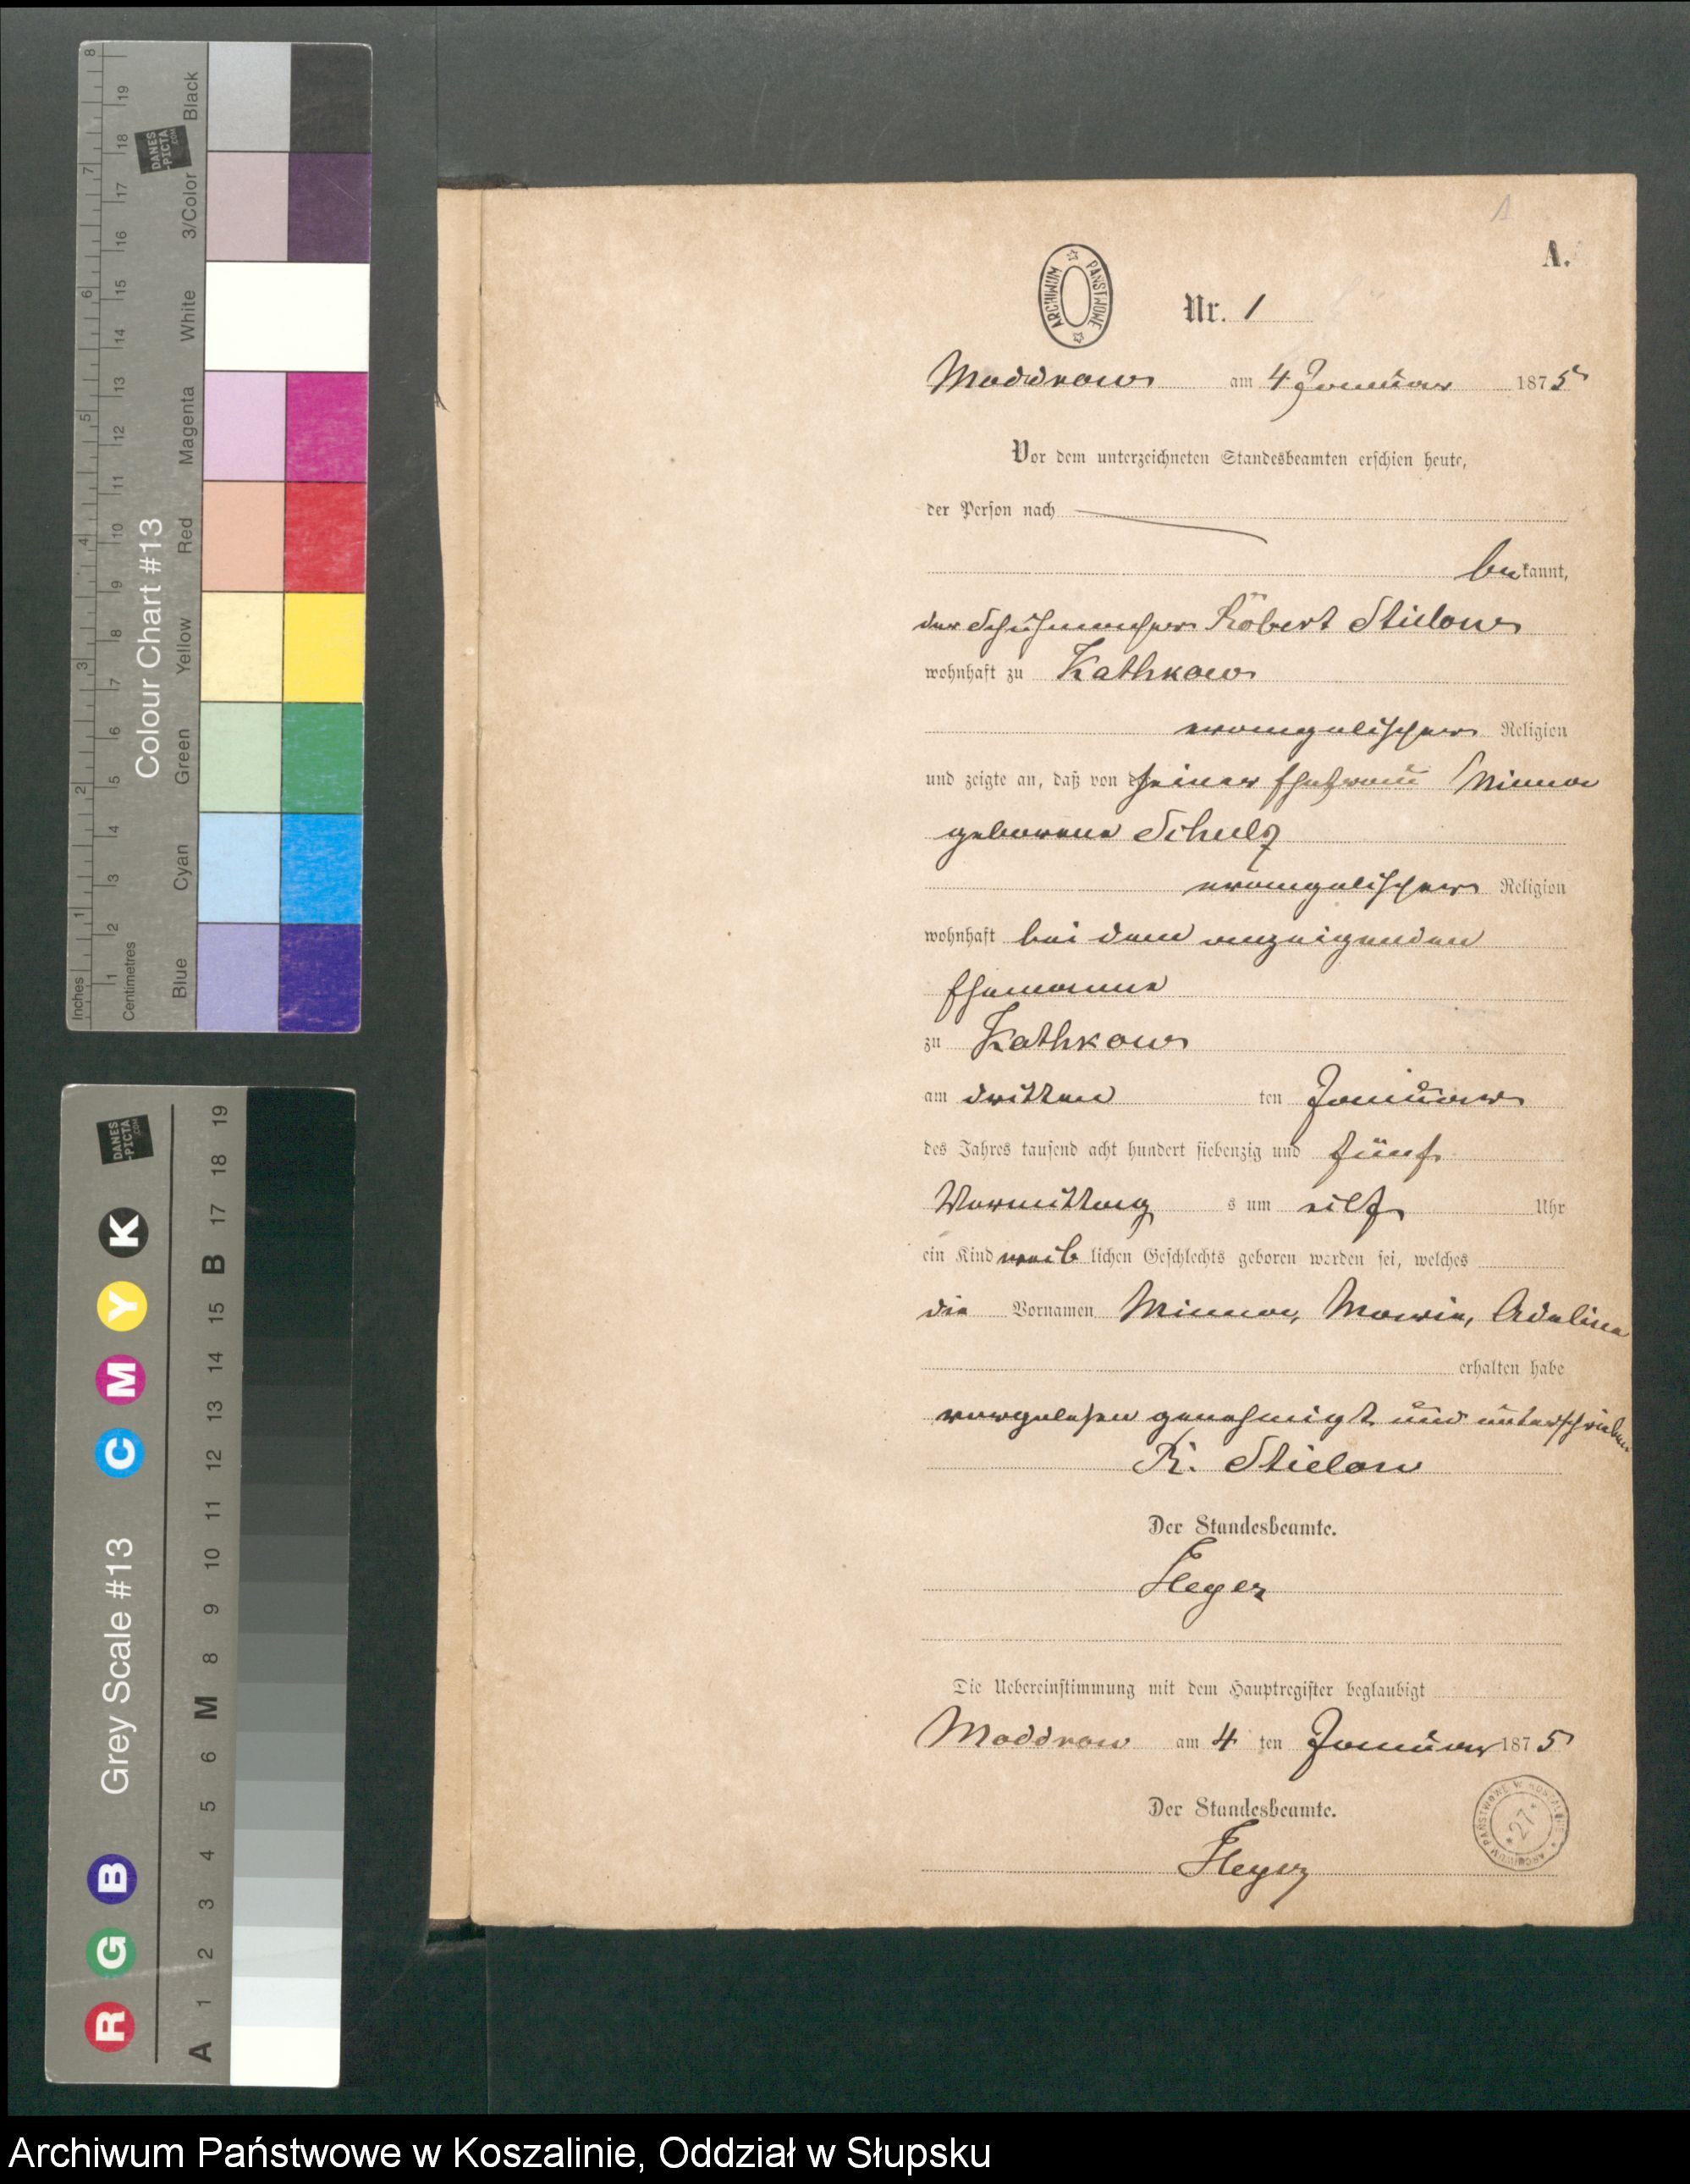 8
19
18
7
17
16
6
15
14
13
5
12
11
4
10
9
3
8
7
2
6
5
4
1
3
2
1
Inches
Centimetres
DANES
-PICTA
.COM
Colour Chart #13
Black
3/Color
White
Magenta
Red
Yellow
Green
Cyan
Blue
DANES
-PICTA
.COM
Grey Scale #13
R G B C M Y K
A 1 2 3 4 5 6 M 8 9 10 11 12 13 14 15 B 17 18 19
1
A.
ARCHIWUM PAŃSTWOWE
Nr. 1
Moddrow am 4 Januar 1875
Vor dem unterzeichneten Standesbeamten erschien heute,
der Person nach
bekannt,
der Schuhmacher Robert Stielow
wohnhaft zu Kathkow
evangelischer Religion
und zeigte an, daß von seiner Ehefrau Minna
geborene Schulz
evangelischer Religion
wohnhaft bei dem anzeigenden
Ehemanne
zu Kathkow
am dritten ten Januar
des Jahres tausend acht hundert siebenzig und fünf
Vormittag s um eilf Uhr
ein Kind weib lichen Geschlechts geboren worden sei, welches
die Vornamen Minna, Marie, Adeline
erhalten habe
vorgelesen genehmigt und unterschrieben
R. Stielow
Der Standesbeamte.
Heyer
Die Uebereinstimmung mit dem Hauptregister beglaubigt
Moddrow am 4 ten Januar 1875
Der Standesbeamte.
Heyer
ARCHIWUM PAŃSTWOWE W KOSZALINIE
* 27 *
Archiwum Państwowe w Koszalinie, Oddział w Słupsku